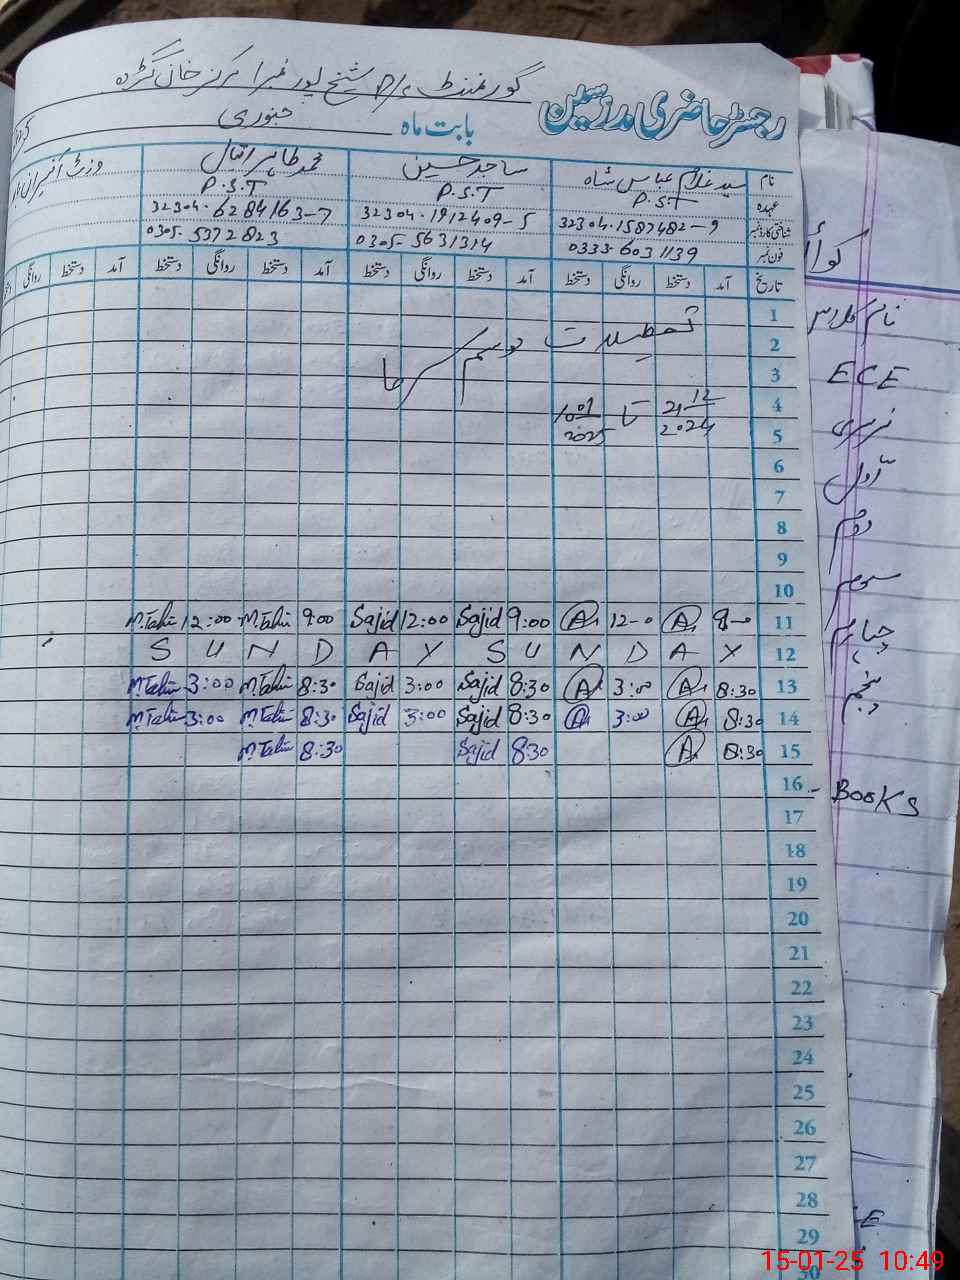 رجسٹر حاضری مدرسین
گورنمنٹ p/s شیخ پور نمبر 1 مرکز خان گڑھ
بابت ماہ جنوری
نام سید غلام عباس شاہ ساجد حسین محمد طاہر اقبال
عہدہ P.S.T P.S.T P.S.T
شناختی کارڈ نمبر 32304-1587482-9 32304-1912409-5 32304-6284163-7
فون نمبر 0333-6031139 0305-5631314 0305-5372823
تاریخ آمد دستخط روانگی دستخط آمد دستخط روانگی دستخط آمد دستخط روانگی دستخط آمد دستخط روانگی
1
2 تعطیلات موسم سرما
3
4 21-12-2024 تا 10-01-2025
5
6
7
8
9
10
11 8-00 A 12-0 A 9:00 Sajid 12:00 Sajid 9:00 M.Tahir 12:00 M.Tahir
12 S U N D A Y S U N D A Y
13 8:30 A 3:00 A 8:30 Sajid 3:00 Sajid 8:30 M.Tahir 3:00 M.Tahir
14 8:30 A 3:00 A 8:30 Sajid 3:00 Sajid 8:30 M.Tahir 3:00 M.Tahir
15 8:30 A 8:30 Sajid 8:30 M.Tahir
16
17
18
19
20
21
22
23
24
25
26
27
28
29
30
نام کلاس
ECE
نرسری
اول
دوم
سوم
چہارم
پنجم
BOOKS
15-01-25 10:49